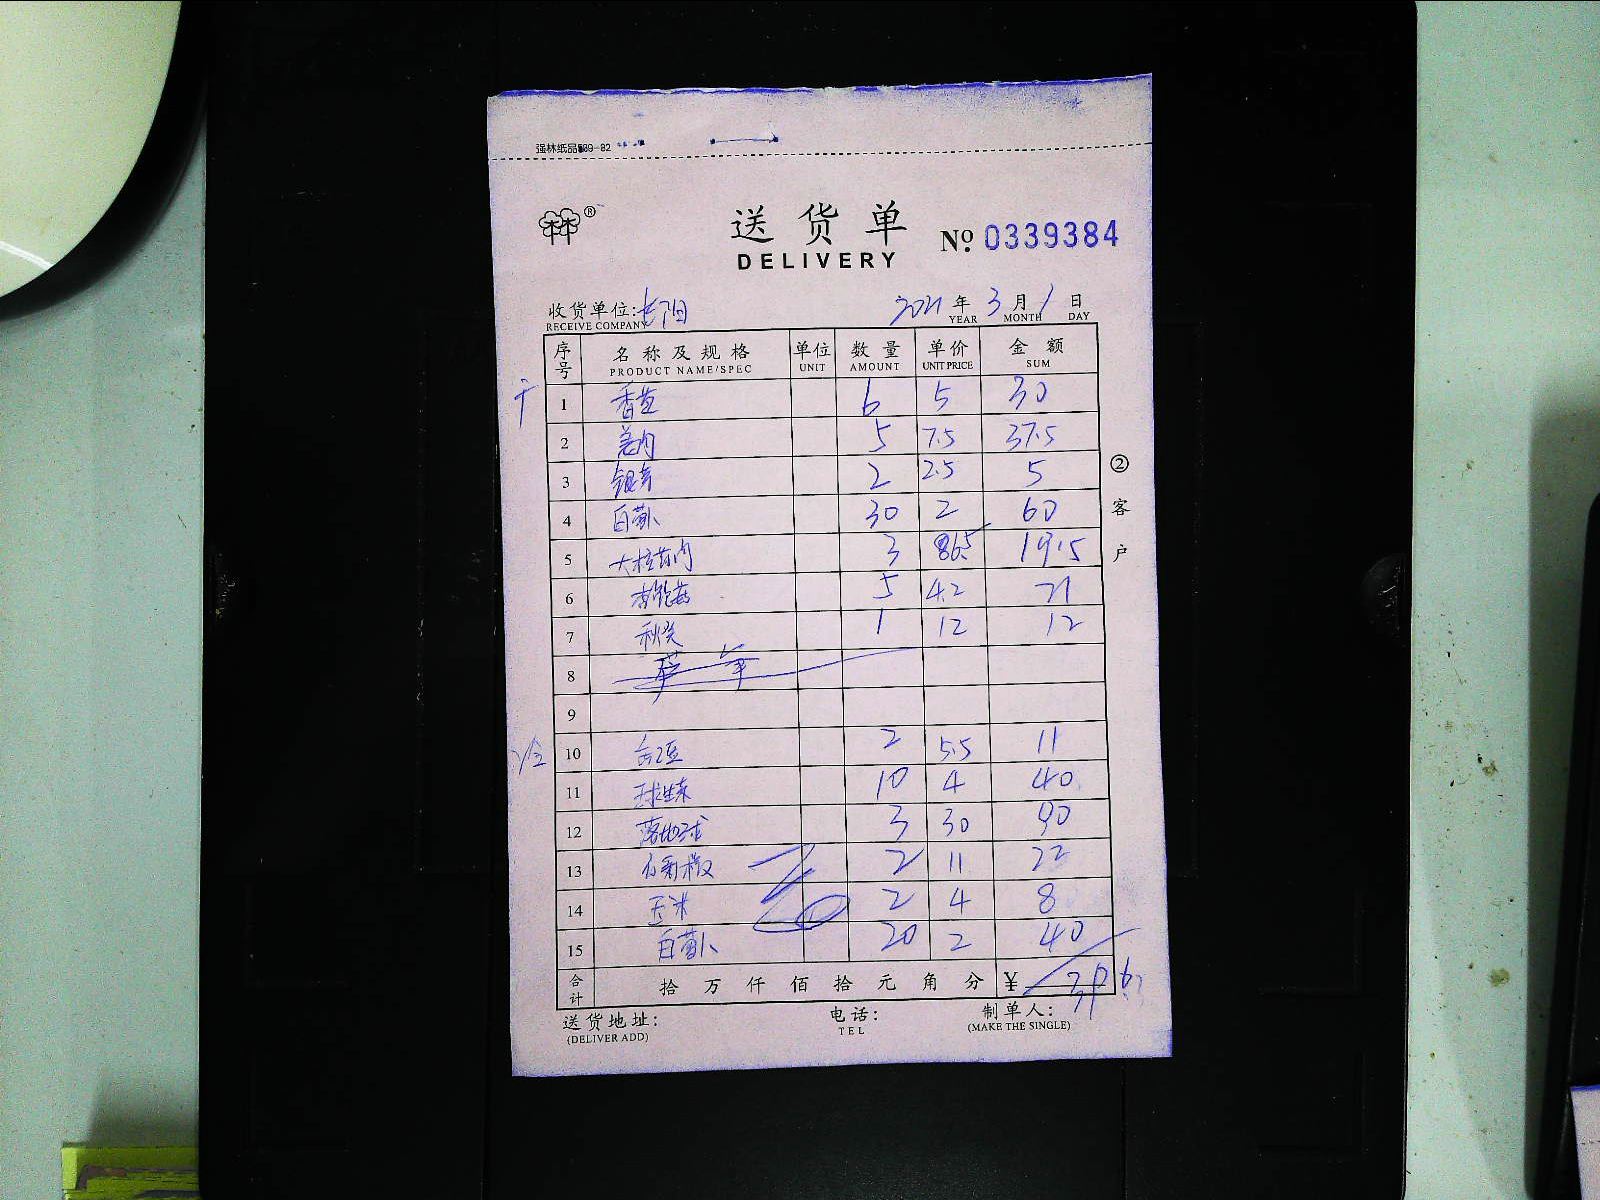 强林纸品589-82
林林 ®
送货单
DELIVERY
№ 0339384
收货单位:长阳
RECEIVE COMPANY
2021 年 3 月 1 日
YEAR MONTH DAY
序号 名称及规格 单位 数量 单价 金额
PRODUCT NAME/SPEC UNIT AMOUNT UNIT PRICE SUM
1 香芹 6 5 30
2 姜肉 5 7.5 37.5
3 银芽 2 2.5 5
4 白萝卜 30 2 60
5 3 6.5 19.5
6 5 4.2 21
7 秋葵 1 12 12
8
9
10 2 5.5 11
11 球生菜 10 4 40
12 落地球 3 30 90
13 2 11 22
14 玉米 2 4 8
15 白萝卜 20 2 40
合计 拾万仟佰拾元角分 ¥
② 客户
送货地址:
(DELIVER ADD)
电话:
TEL
制单人:
(MAKE THE SINGLE)